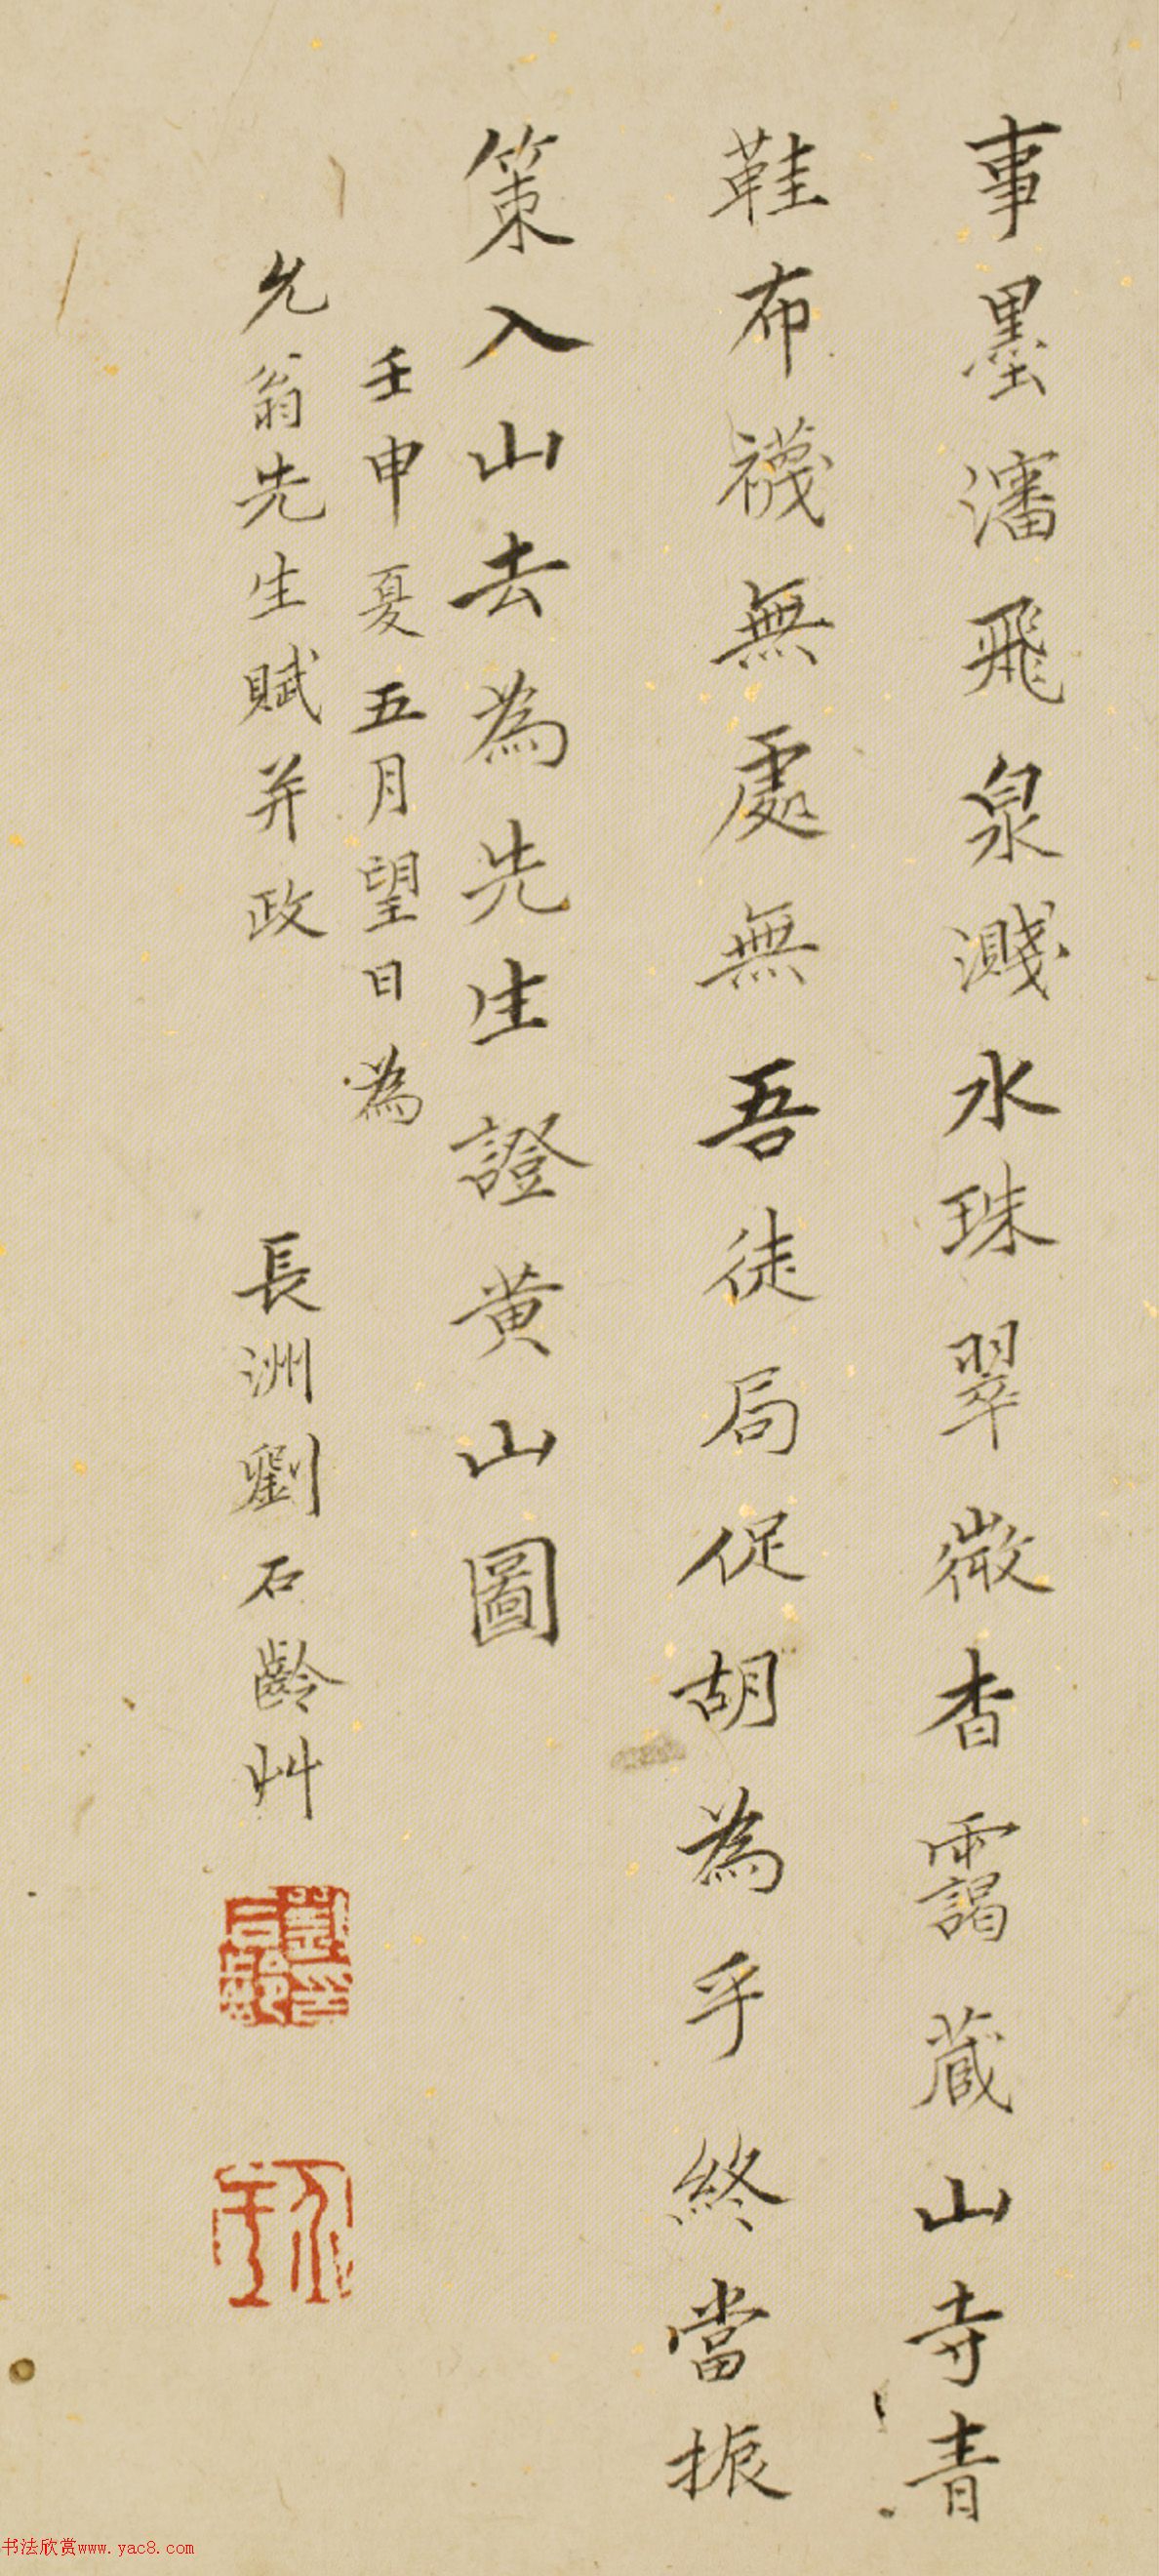 事墨瀋飛泉濺水珠翠微杳靄藏山寺青
鞋布襪無處無吾徒局促胡為乎終當振
策入山去為先生證黃山圖
壬申夏五月望日為
允翁先生賦并政
長洲劉石齡艸
書法欣赏www.yac8.com